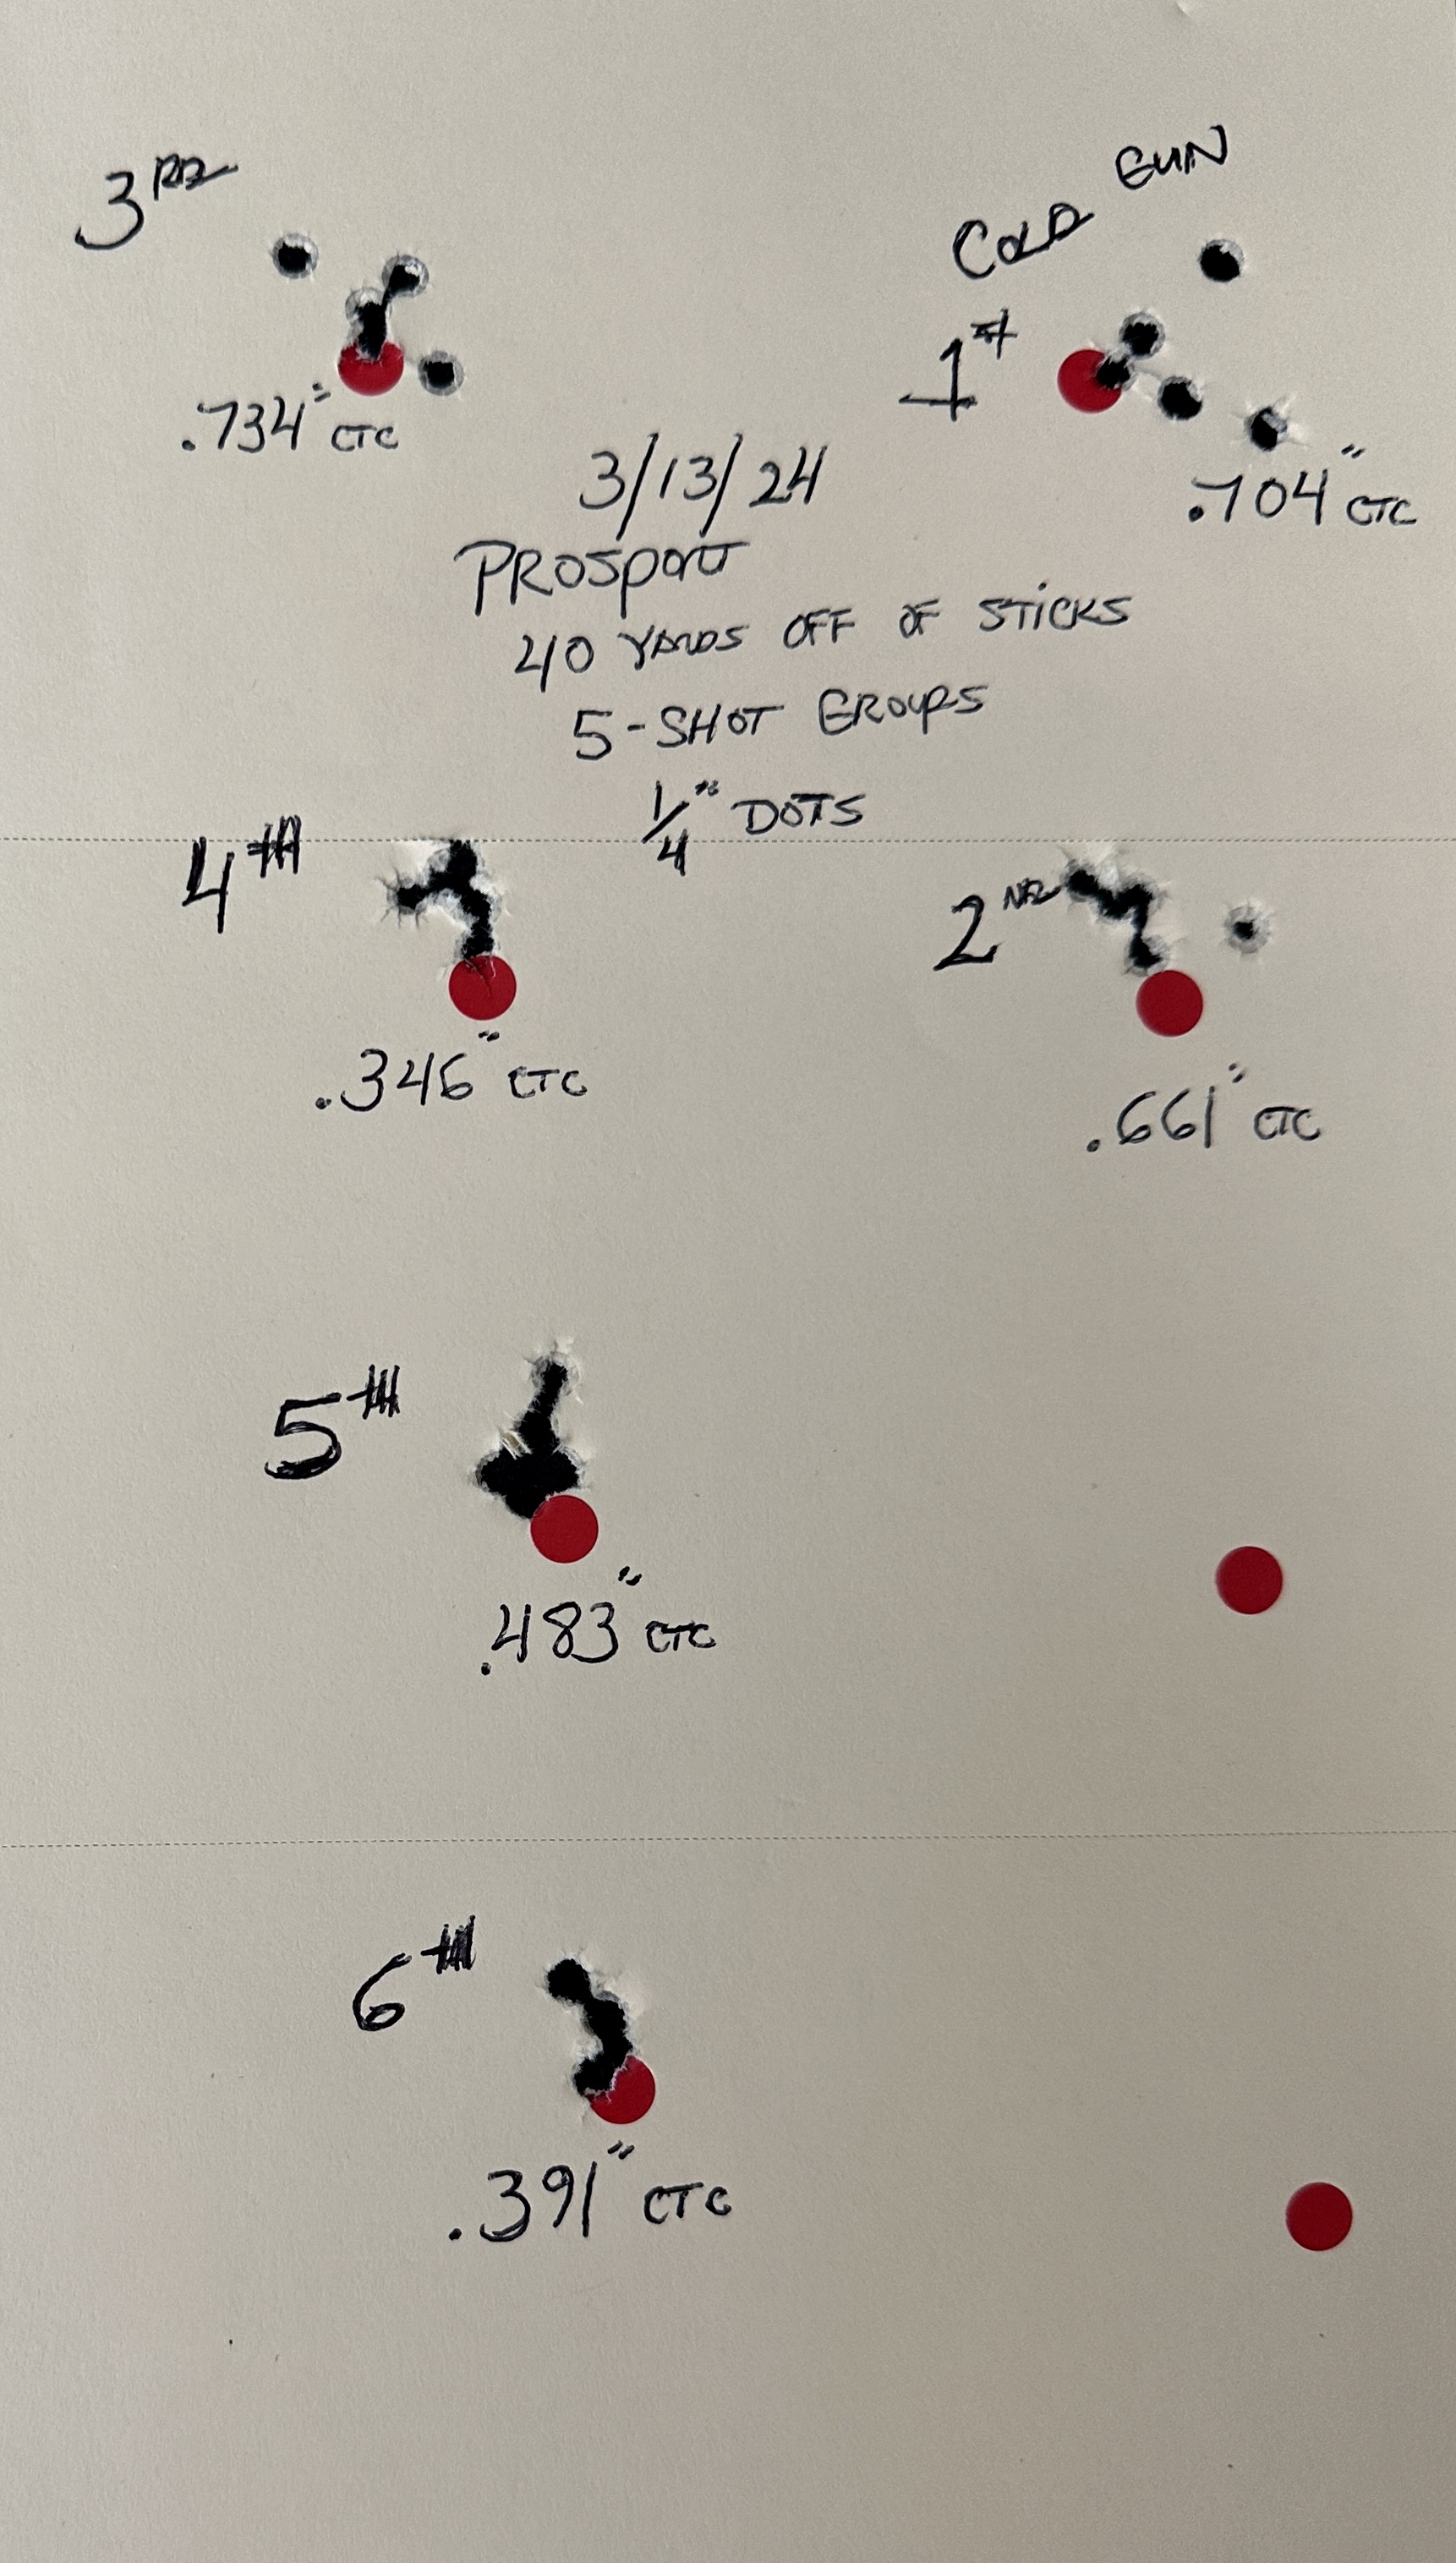 3RD
.734" CTC
COLD GUN
1st
.704" CTC
3/13/24
PROSPORT
40 YARDS OFF OF STICKS
5-SHOT GROUPS
1/4" DOTS
4TH
.346" CTC
2ND
.661" CTC
5TH
.483" CTC
6TH
.391" CTC